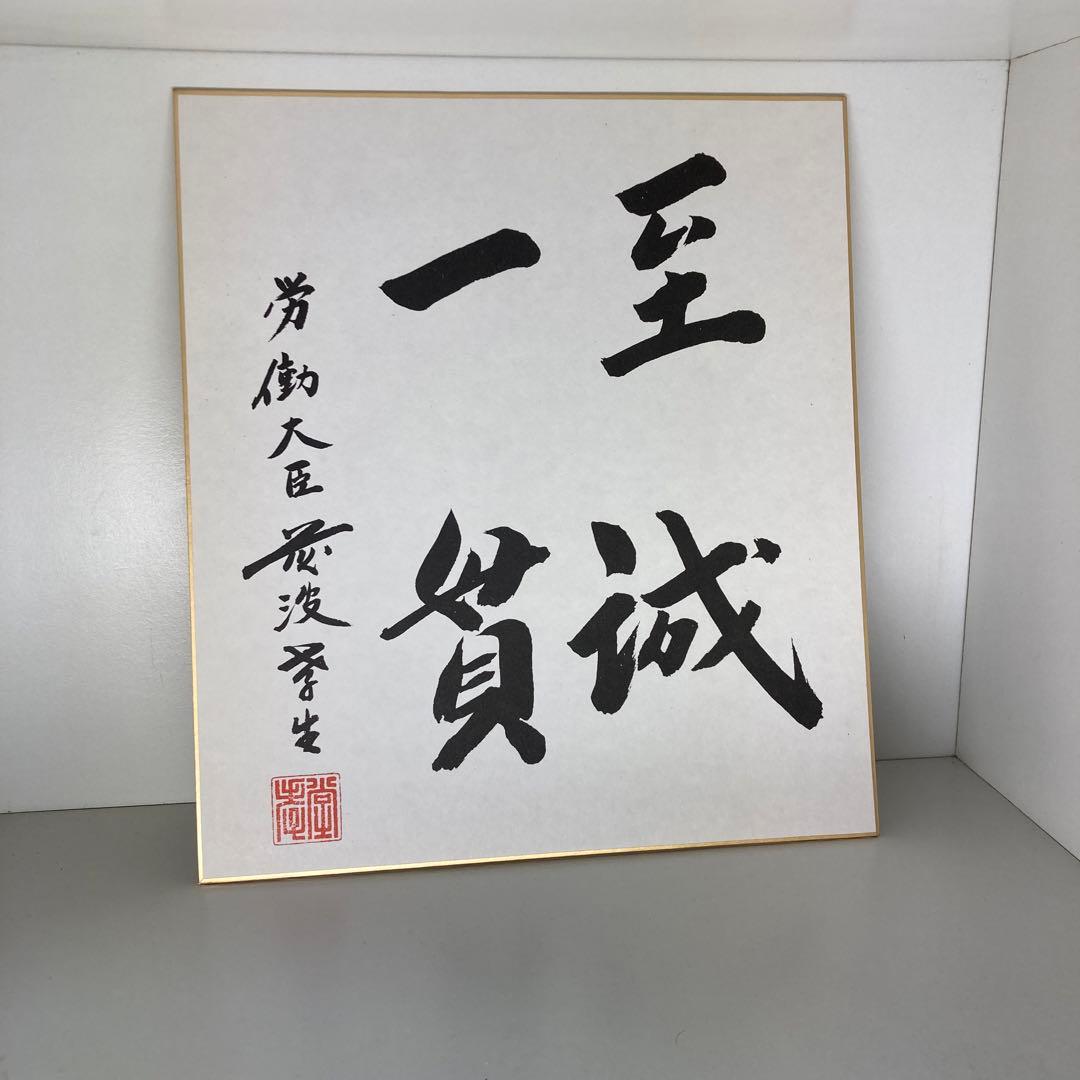 至誠
一貫
労働大臣 藤波孝生